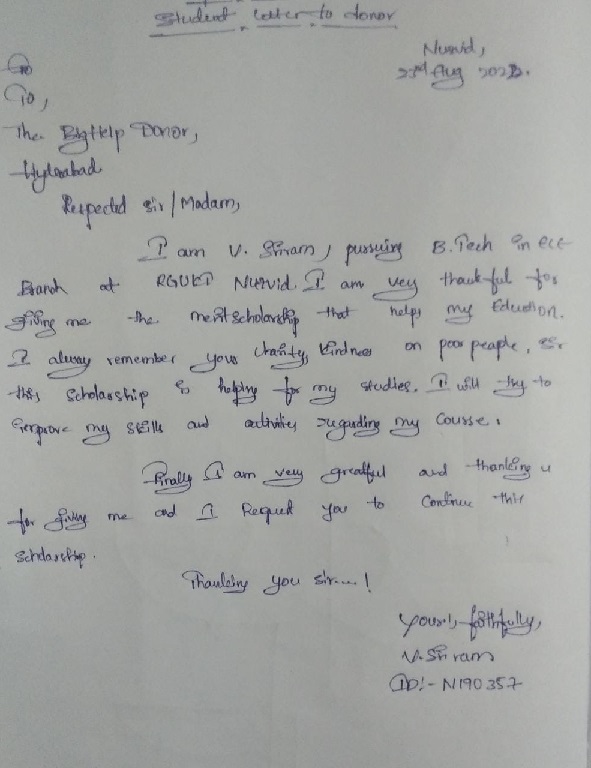 Student Letter to donor
Nuzvid,
23rd Aug 2022.
To,
The BigHelp Donor,
Hyderabad
Respected sir/Madam,
I am V. Sriram, pursuing B.Tech in ece
Branch at RGUKT Nuzvid. I am very thankful for
giving me the merit scholarship that helps my Eduction.
I alway remember your charity, kindness on poor people, Sir
this scholarship is helping for my studies. I will try to
improve my skills and activities regarding my Course.
Finally I am very greatful and thanking u
for giving me and I Request you to Continue this
Scholarship.
Thanking you sir...!
Yours faithfully,
V. Sriram
ID:- N190357